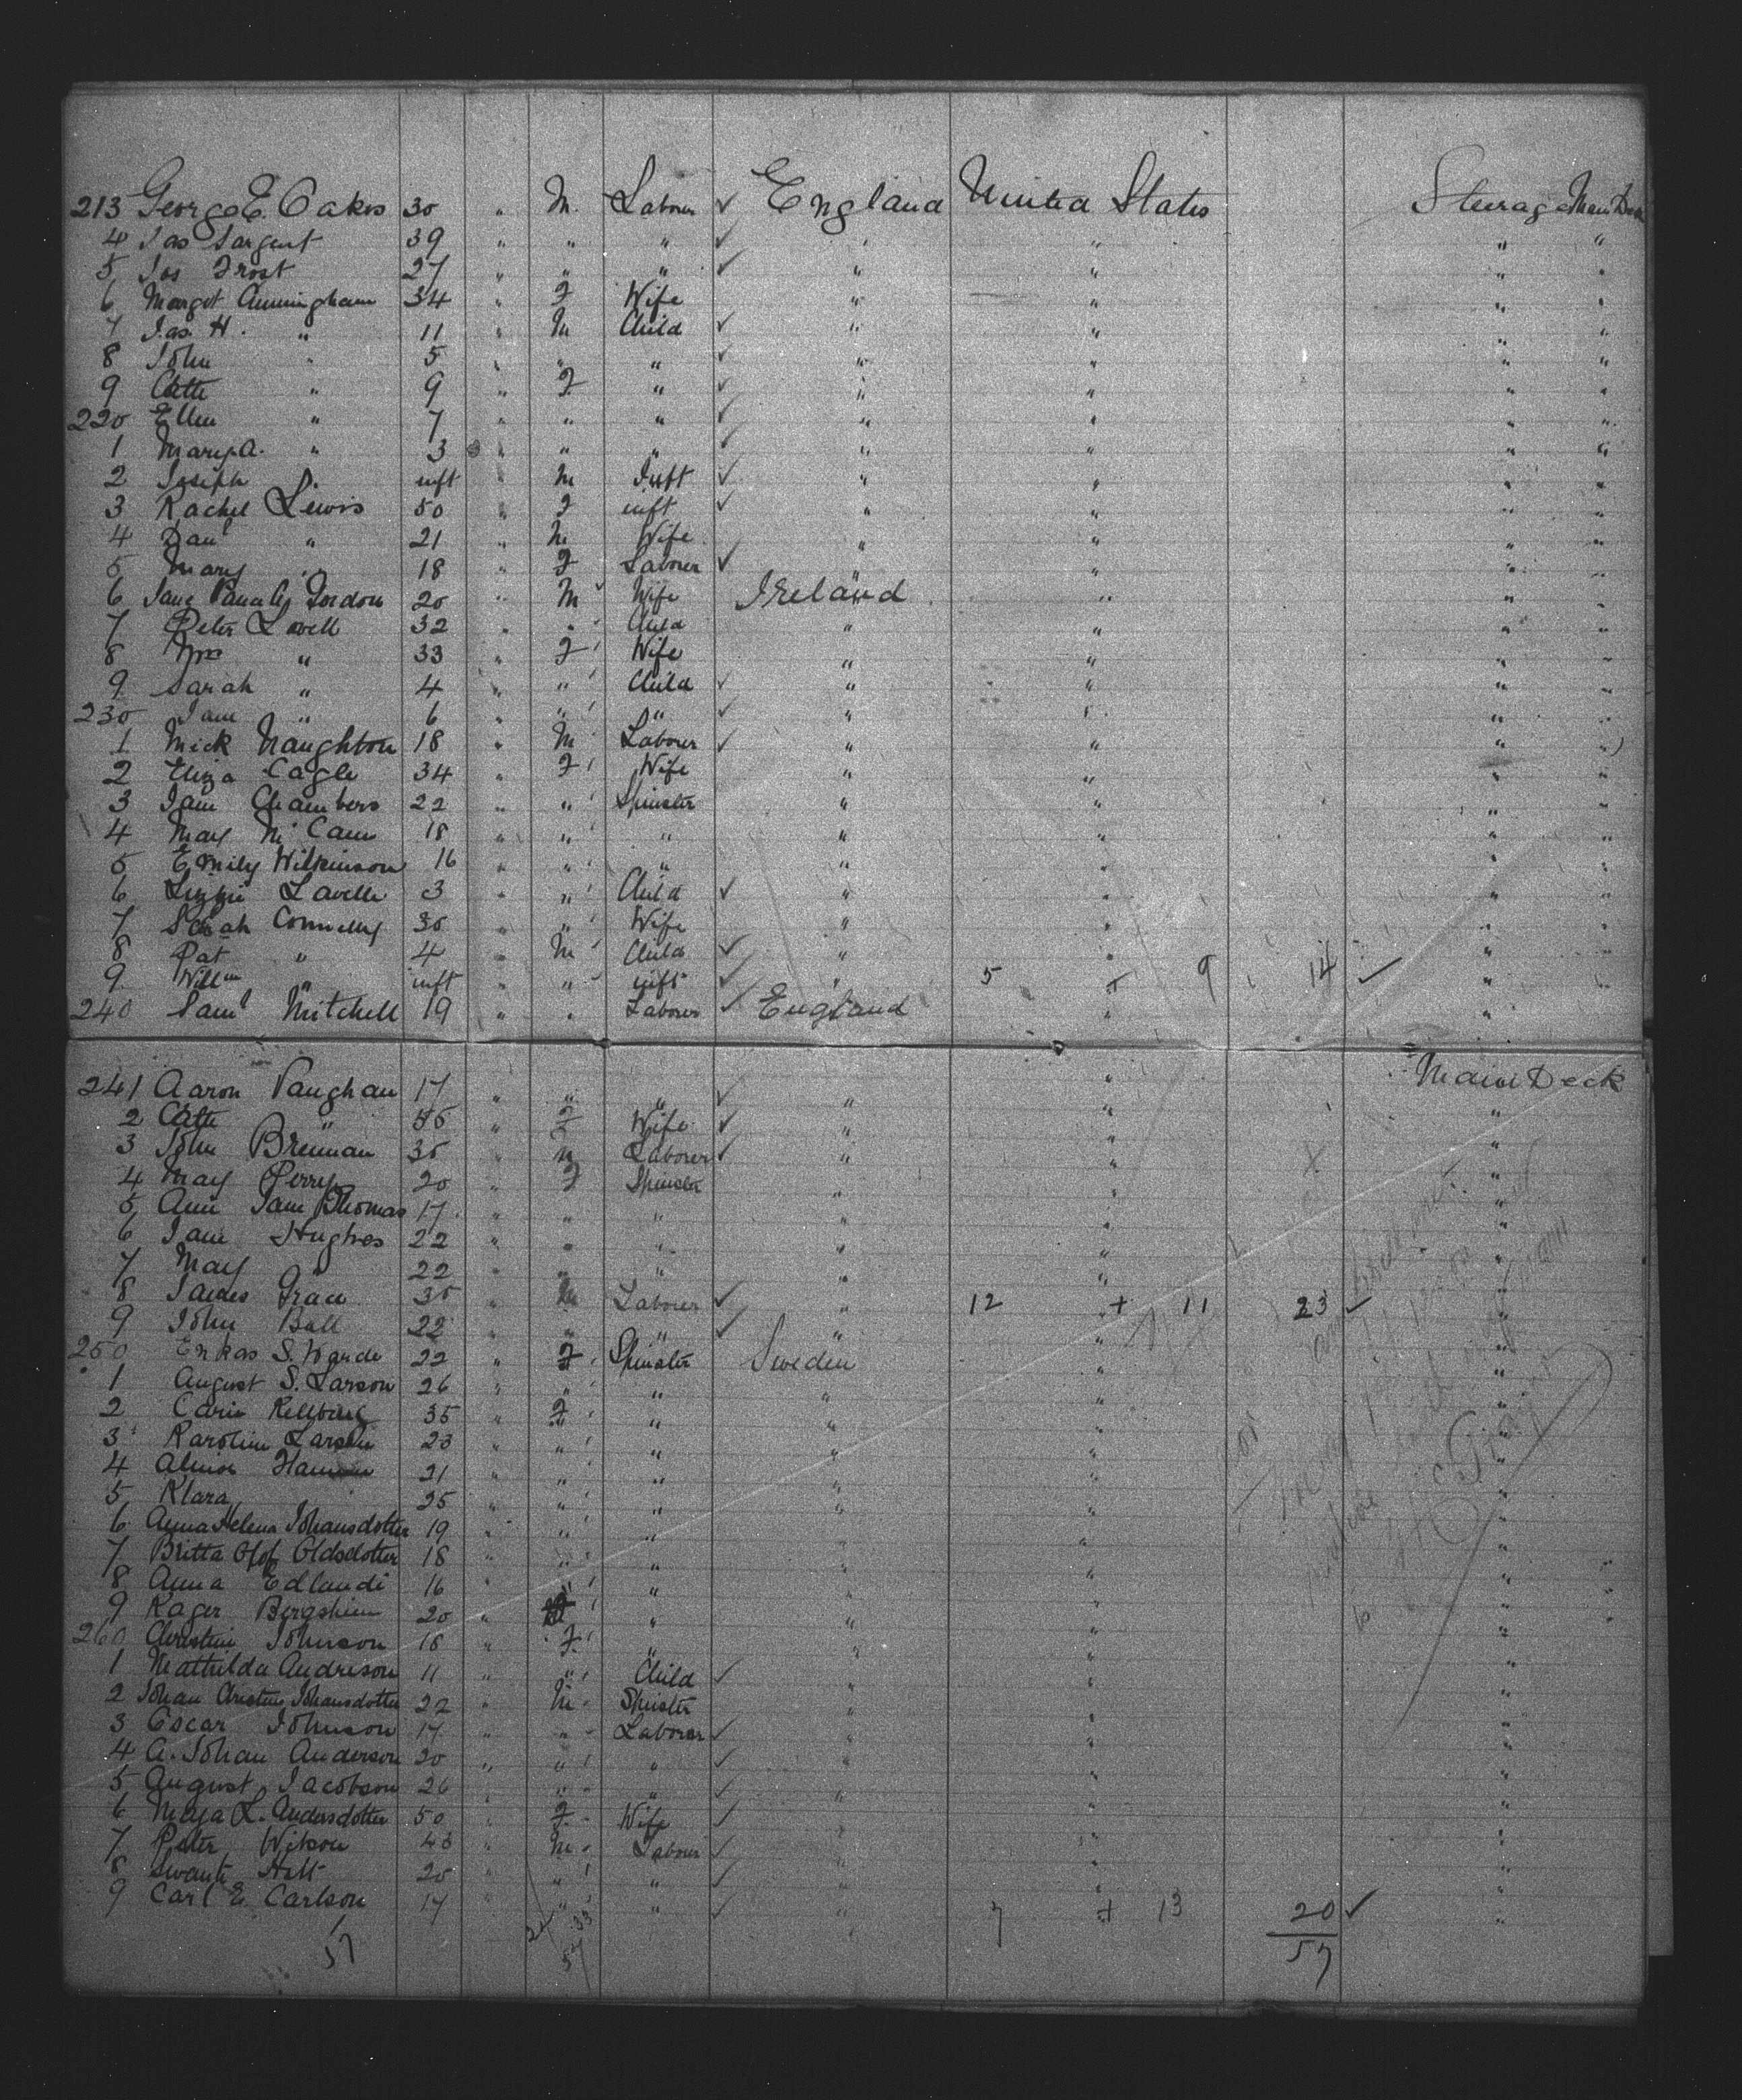 213 George E. Oakes 30 " M. Laborer ✓ England United States Steerage Main Deck
4 Jas Sargent 39 " " " ✓ " " " "
5 Jos Frost 27 " " " ✓ " " " "
6 Margot Cunningham 34 " F Wife " " " "
7 Jas. H. " 11 " M Child ✓ " " " "
8 John " 5 " " " ✓ " " " "
9 Cath " 9 " F " ✓ " " " "
220 Ellen " 7 " " " ✓ " " " "
1 Mary A. " 3 " " " ✓ " " " "
2 Joseph " inft " M Inft ✓ " " " "
3 Rachel Lewis 50 " F inft ✓ " " " "
4 Danl " 21 " M Wife " " " "
5 Mary " 18 " F Laborer ✓ " " " "
6 Jane Gordon 20 " M Wife Ireland " " "
7 Peter Lavell 32 " " Child " " " "
8 Mrs " 33 " F Wife " " " "
9 Sarah " 4 " " Child ✓ " " " "
230 Jane " 6 " " " ✓ " " " "
1 Mick Naughton 18 " M Laborer ✓ " " " "
2 Eliza Cagle 34 " F Wife " " " "
3 Jane Chambers 22 " " Spinster " " " "
4 Mary McCann 18 " " " " " " "
5 Emily Wilkinson 16 " " " " " " "
6 Lizzie Lavelle 3 " " Child ✓ " " " "
7 Sarah Connelly 30 " " Wife " " " "
8 Pat " 4 " M Child ✓ " " " "
9 Willm " inft " " inft ✓ " 5 + 9 14 ✓ " "
240 Saml Mitchell 19 " " Laborer ✓ England " "
241 Aaron Vaughan 17 " " " ✓ " " Main Deck
2 Cath " 55 " F Wife ✓ " " "
3 John Brennan 35 " M Laborer ✓ " " "
4 Mary Perry 20 " F Spinster " " "
5 Ann Jane Thomas 17 " " " " " "
6 Jane Hughes 22 " " " " " "
7 Mary 22 " " " " " "
8 James Grace 35 " M Laborer ✓ " 12 + 11 23 ✓ "
9 John Ball 22 " " " ✓ " " "
250 Enkas S. Wande 22 " F Spinster Sweden " "
1 August S. Larson 26 " " " " " "
2 Carin Kellberg 35 " F " " " "
3 Karolin Larsen 23 " " " " " "
4 Almina 21 " " " " " "
5 Klara 25 " " " " " "
6 Anna Helena Johansdotter 19 " " " " " "
7 Britta Olof Oldsdotter 18 " " " " " "
8 Anna Edlandi 16 " " " " " "
9 Kager 20 " " " " "
260 Christin Johnson 18 " F " " " "
1 Mathilda Andreson 11 " " Child ✓ " " "
2 Johan Christin Johansdotter 22 " M Spinster " " "
3 Oscar Johnson 17 " " Laborer ✓ " " "
4 A. Johan Anderson 20 " " " ✓ " " "
5 August Jacobson 26 " " " ✓ " " "
6 Maja L. Andersdotter 50 " F Wife ✓ " " "
7 Peter Wilson 43 " M Labour ✓ " " "
8 Swante Hall 20 " " " ✓ " " "
9 Carl E. Carlson 17 " " " ✓ " 7 + 13 20 ✓ "
57 24 33 57 57